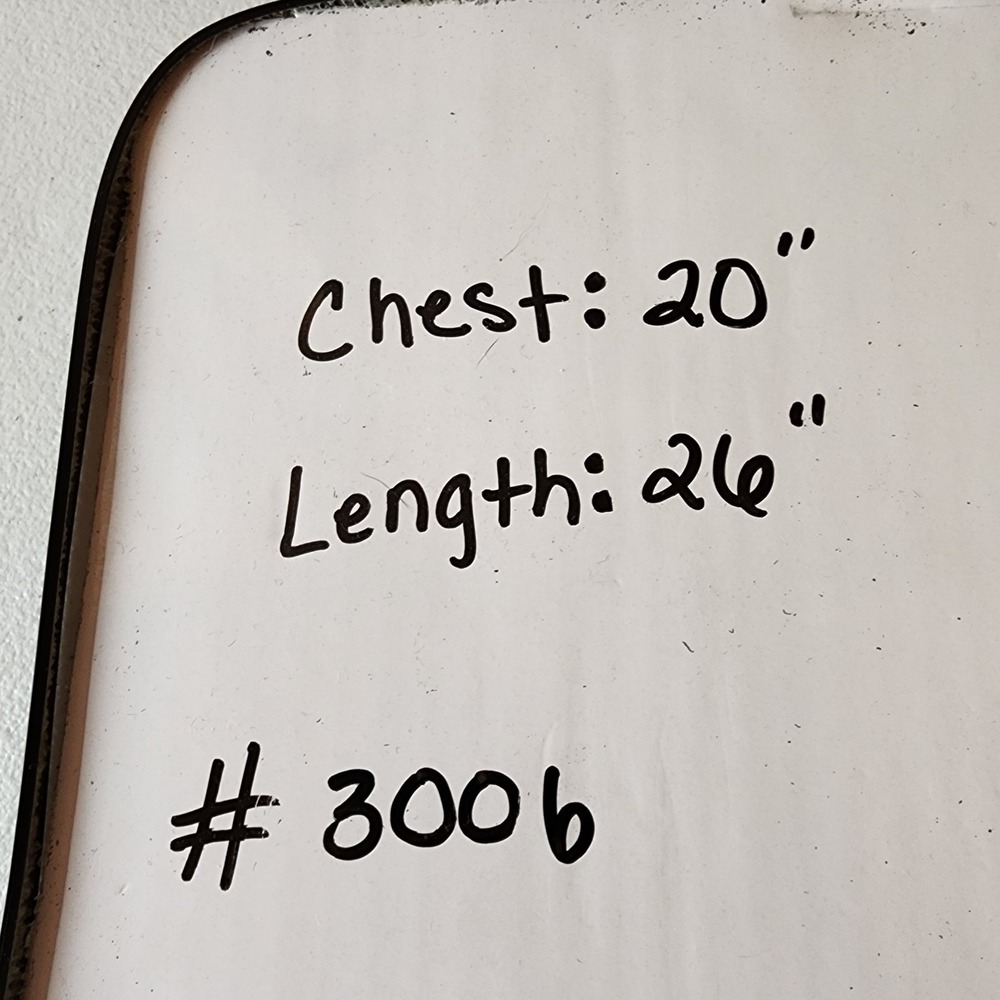 Chest: 20"
Length: 26"
# 3006